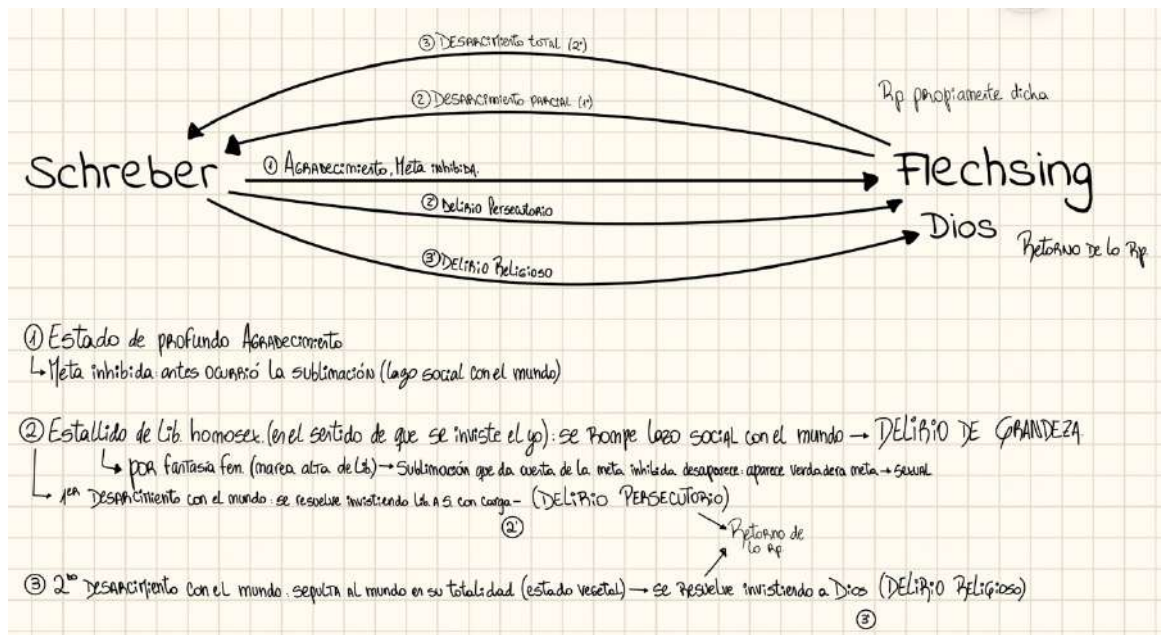 ③ DESASIMIENTO TOTAL (2°)
② DESASIMIENTO PARCIAL (1°)
Rp propiamente dicha
Schreber
① AGRADECIMIENTO, Meta inhibida.
Flechsing
②' Delirio Persecutorio
Dios
Retorno de lo Rp.
③' DELIRIO Religioso
① Estado de profundo AGRADECIMIENTO
↳ Meta inhibida: antes ocurrió la sublimación (lazo social con el mundo)
② Estallido de Lib. homosex. (en el sentido de que se inviste el yo): se rompe lazo social con el mundo → DELIRIO DE GRANDEZA
↳ por fantasía fem. (marea alta de Lib) → Sublimación que da cuenta de la meta inhibida desaparece: aparece verdadera meta → sexual
↳ 1er DESASIMIENTO con el mundo: se resuelve invistiendo Lib. A S. con carga - (DELIRIO PERSECUTORIO)
②'
Retorno de
lo Rp
③ 2do DESASIMIENTO con el mundo: sepulta al mundo en su totalidad (estado vegetal) → se resuelve invistiendo a Dios (DELIRIO RELIGIOSO)
③'